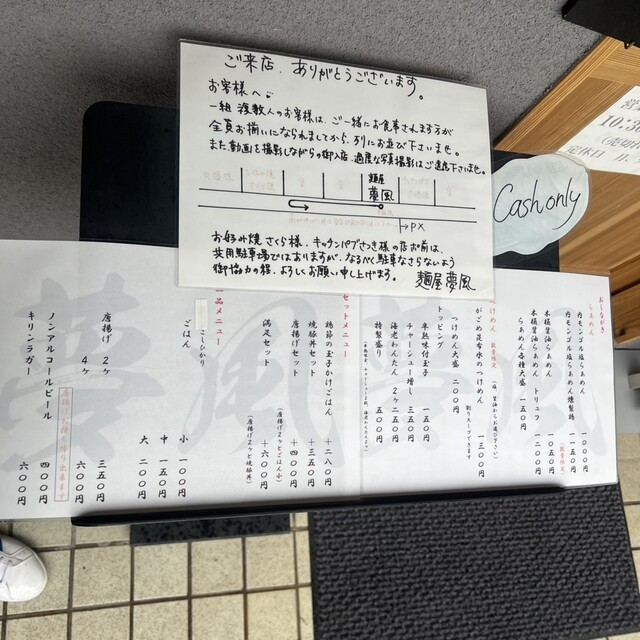 ご来店、ありがとうございます。
お客様へ
一組 複数人のお客様は、ご一緒にお食事されます方が
全員お揃いになられましてから、列にお並び下さいませ。
また、動画を撮影しながらの御入店、過度な写真撮影はご遠慮下さいませ。
麺屋
夢風
PX
お好み焼 さくら様、キッチンパブさつき様の店前は、
共用駐車場ではありますが、なるべく駐車なさらないよう
御協力の程、よろしくお願い申し上げます。
麺屋 夢風
Cash only
10:3
定休日
おしながき
らぁめん
内モンゴル塩らぁめん 一〇〇〇円
内モンゴル塩らぁめん燻製鶏 一五〇〇円
数量限定
木桶醤油らぁめん 一〇〇〇円
木桶醤油らぁめんトリュフ 一二〇〇円
らぁめん各種大盛 一五〇円
つけめん 数量限定
がごめ昆布水のつけめん 一三〇〇円
(塩、醤油からお選び下さい)
割りスープできます
つけめん大盛 二〇〇円
トッピング
半熟味付玉子 一五〇円
チャーシュー増し 三五〇円
海老わんたん 2ヶ 二五〇円
特製盛り 五〇〇円
セットメニュー
鶏節の玉子かけごはん +二八〇円
焼豚丼セット +三五〇円
唐揚げセット +四〇〇円
(唐揚げ2ヶとごはん小)
満足セット +六〇〇円
(唐揚げ2ヶと焼豚丼)
一品メニュー
こしひかり
ごはん
小 一〇〇円
中 一五〇円
大 二〇〇円
唐揚げ 2ヶ 三五〇円
4ヶ 六〇〇円
唐揚げお持ち帰り出来ます
ノンアルコールビール 四〇〇円
キリンラガー 六〇〇円
夢風